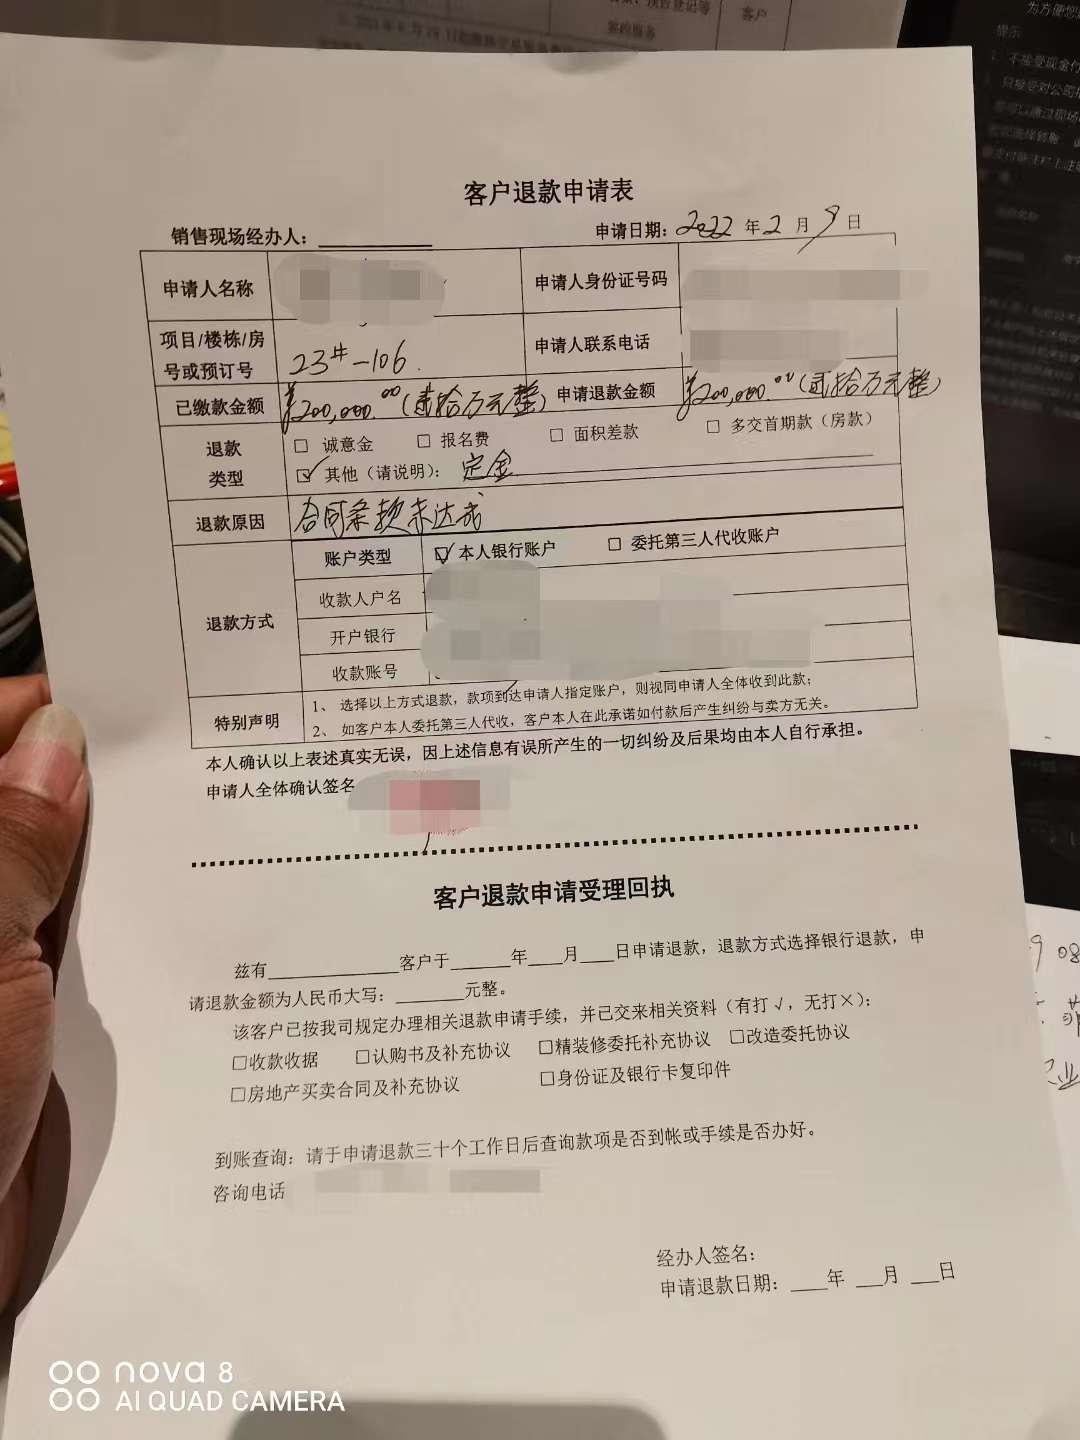 客户
客户退款申请表
销售现场经办人：
申请日期：2022 年 2 月 9 日
申请人名称
申请人身份证号码
项目/楼栋/房号或预订号
23#-106
申请人联系电话
已缴款金额
¥200,000.00(贰拾万元整)
申请退款金额
¥200,000.00(贰拾万元整)
退款类型
□ 诚意金 □ 报名费 □ 面积差款 □ 多交首期款（房款）
☑ 其他（请说明）：定金
退款原因
合同条款未达成
退款方式
账户类型
☑ 本人银行账户 □ 委托第三人代收账户
收款人户名
开户银行
收款账号
特别声明
1、 选择以上方式退款，款项到达申请人指定账户，则视同申请人全体收到此款；
2、 如客户本人委托第三人代收，客户本人在此承诺如付款后产生纠纷与卖方无关。
本人确认以上表述真实无误，因上述信息有误所产生的一切纠纷及后果均由本人自行承担。
申请人全体确认签名
客户退款申请受理回执
兹有____________客户于______年____月____日申请退款，退款方式选择银行退款，申
请退款金额为人民币大写：________元整。
该客户已按我司规定办理相关退款申请手续，并已交来相关资料（有打√，无打×）：
□收款收据 □认购书及补充协议 □精装修委托补充协议 □改造委托协议
□房地产买卖合同及补充协议 □身份证及银行卡复印件
到账查询：请于申请退款三十个工作日后查询款项是否到帐或手续是否办好。
咨询电话
经办人签名：
申请退款日期：____年 ___月 ___日
nova 8
AI QUAD CAMERA